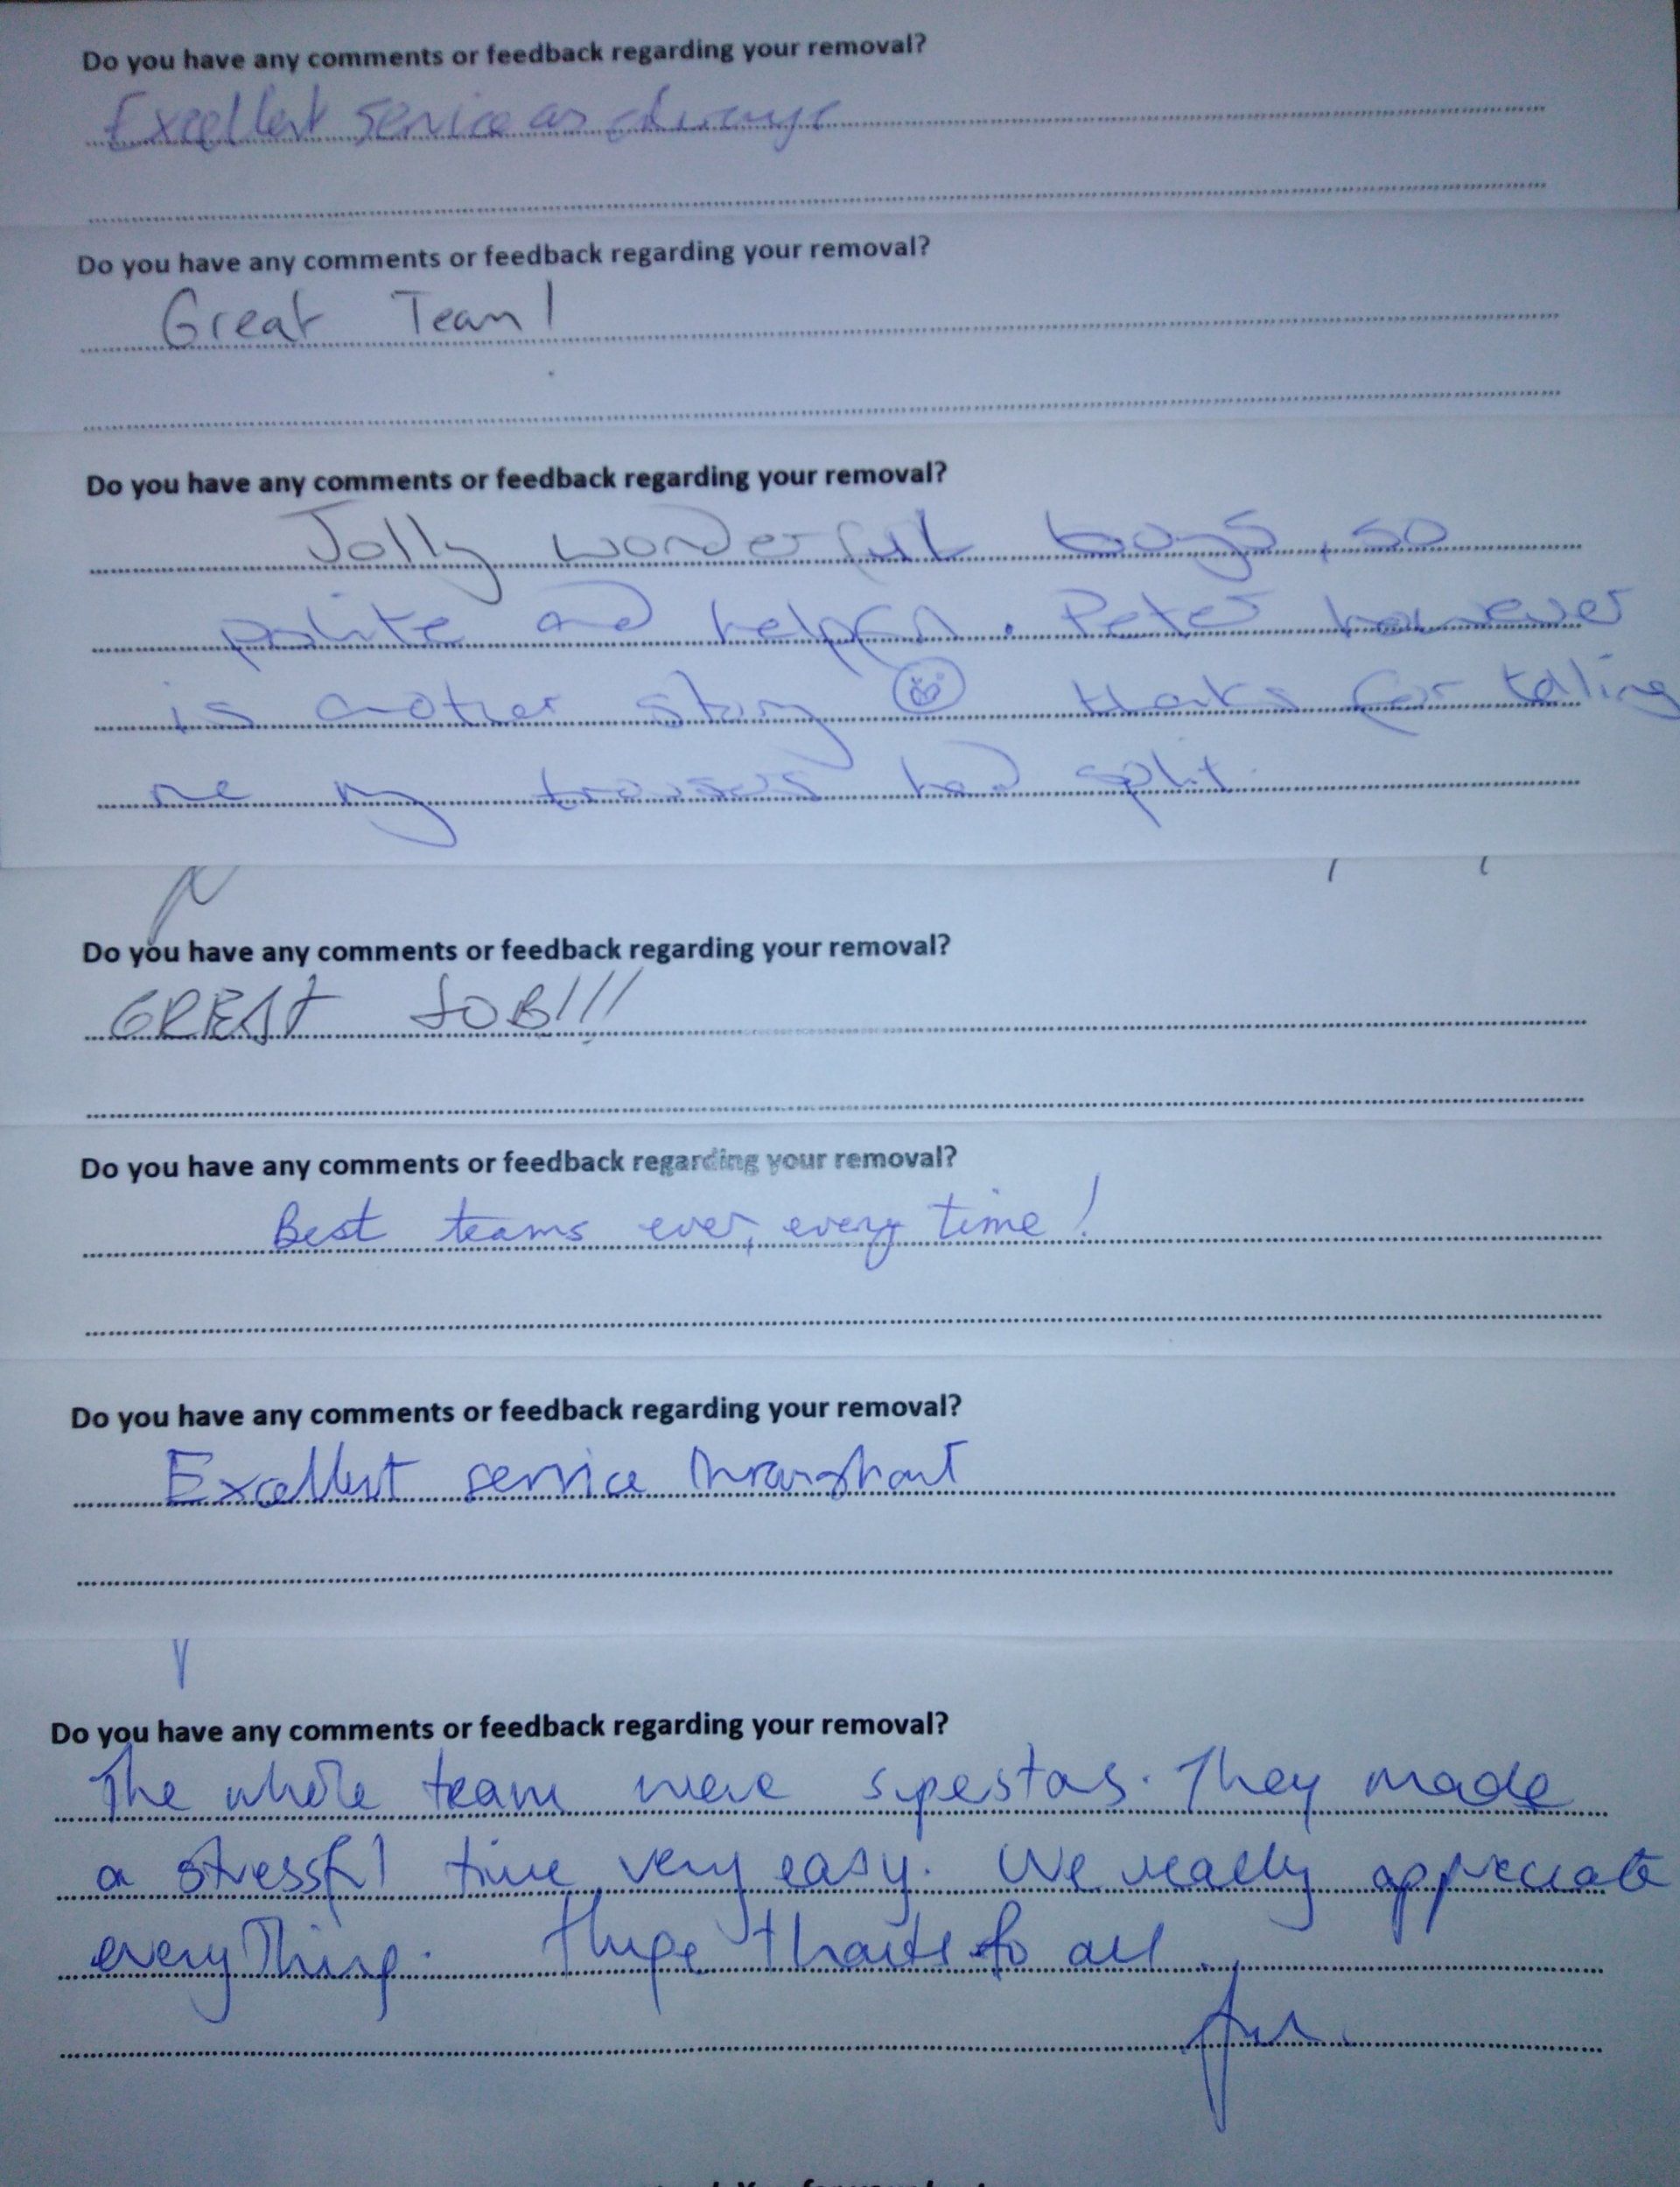 Do you have any comments or feedback regarding your removal?
Excellent service as always
Do you have any comments or feedback regarding your removal?
Great Team!
Do you have any comments or feedback regarding your removal?
Jolly wonderful boys, so
polite and helpful. Peter however
is another story thanks for telling
me my trousers had split.
Do you have any comments or feedback regarding your removal?
GREAT JOB!!!
Do you have any comments or feedback regarding your removal?
Best teams ever, every time!
Do you have any comments or feedback regarding your removal?
Excellent service throughout
Do you have any comments or feedback regarding your removal?
The whole team were supestars. They made
a stressful time very easy. We really appreciate
everything. Huge thanks to all.